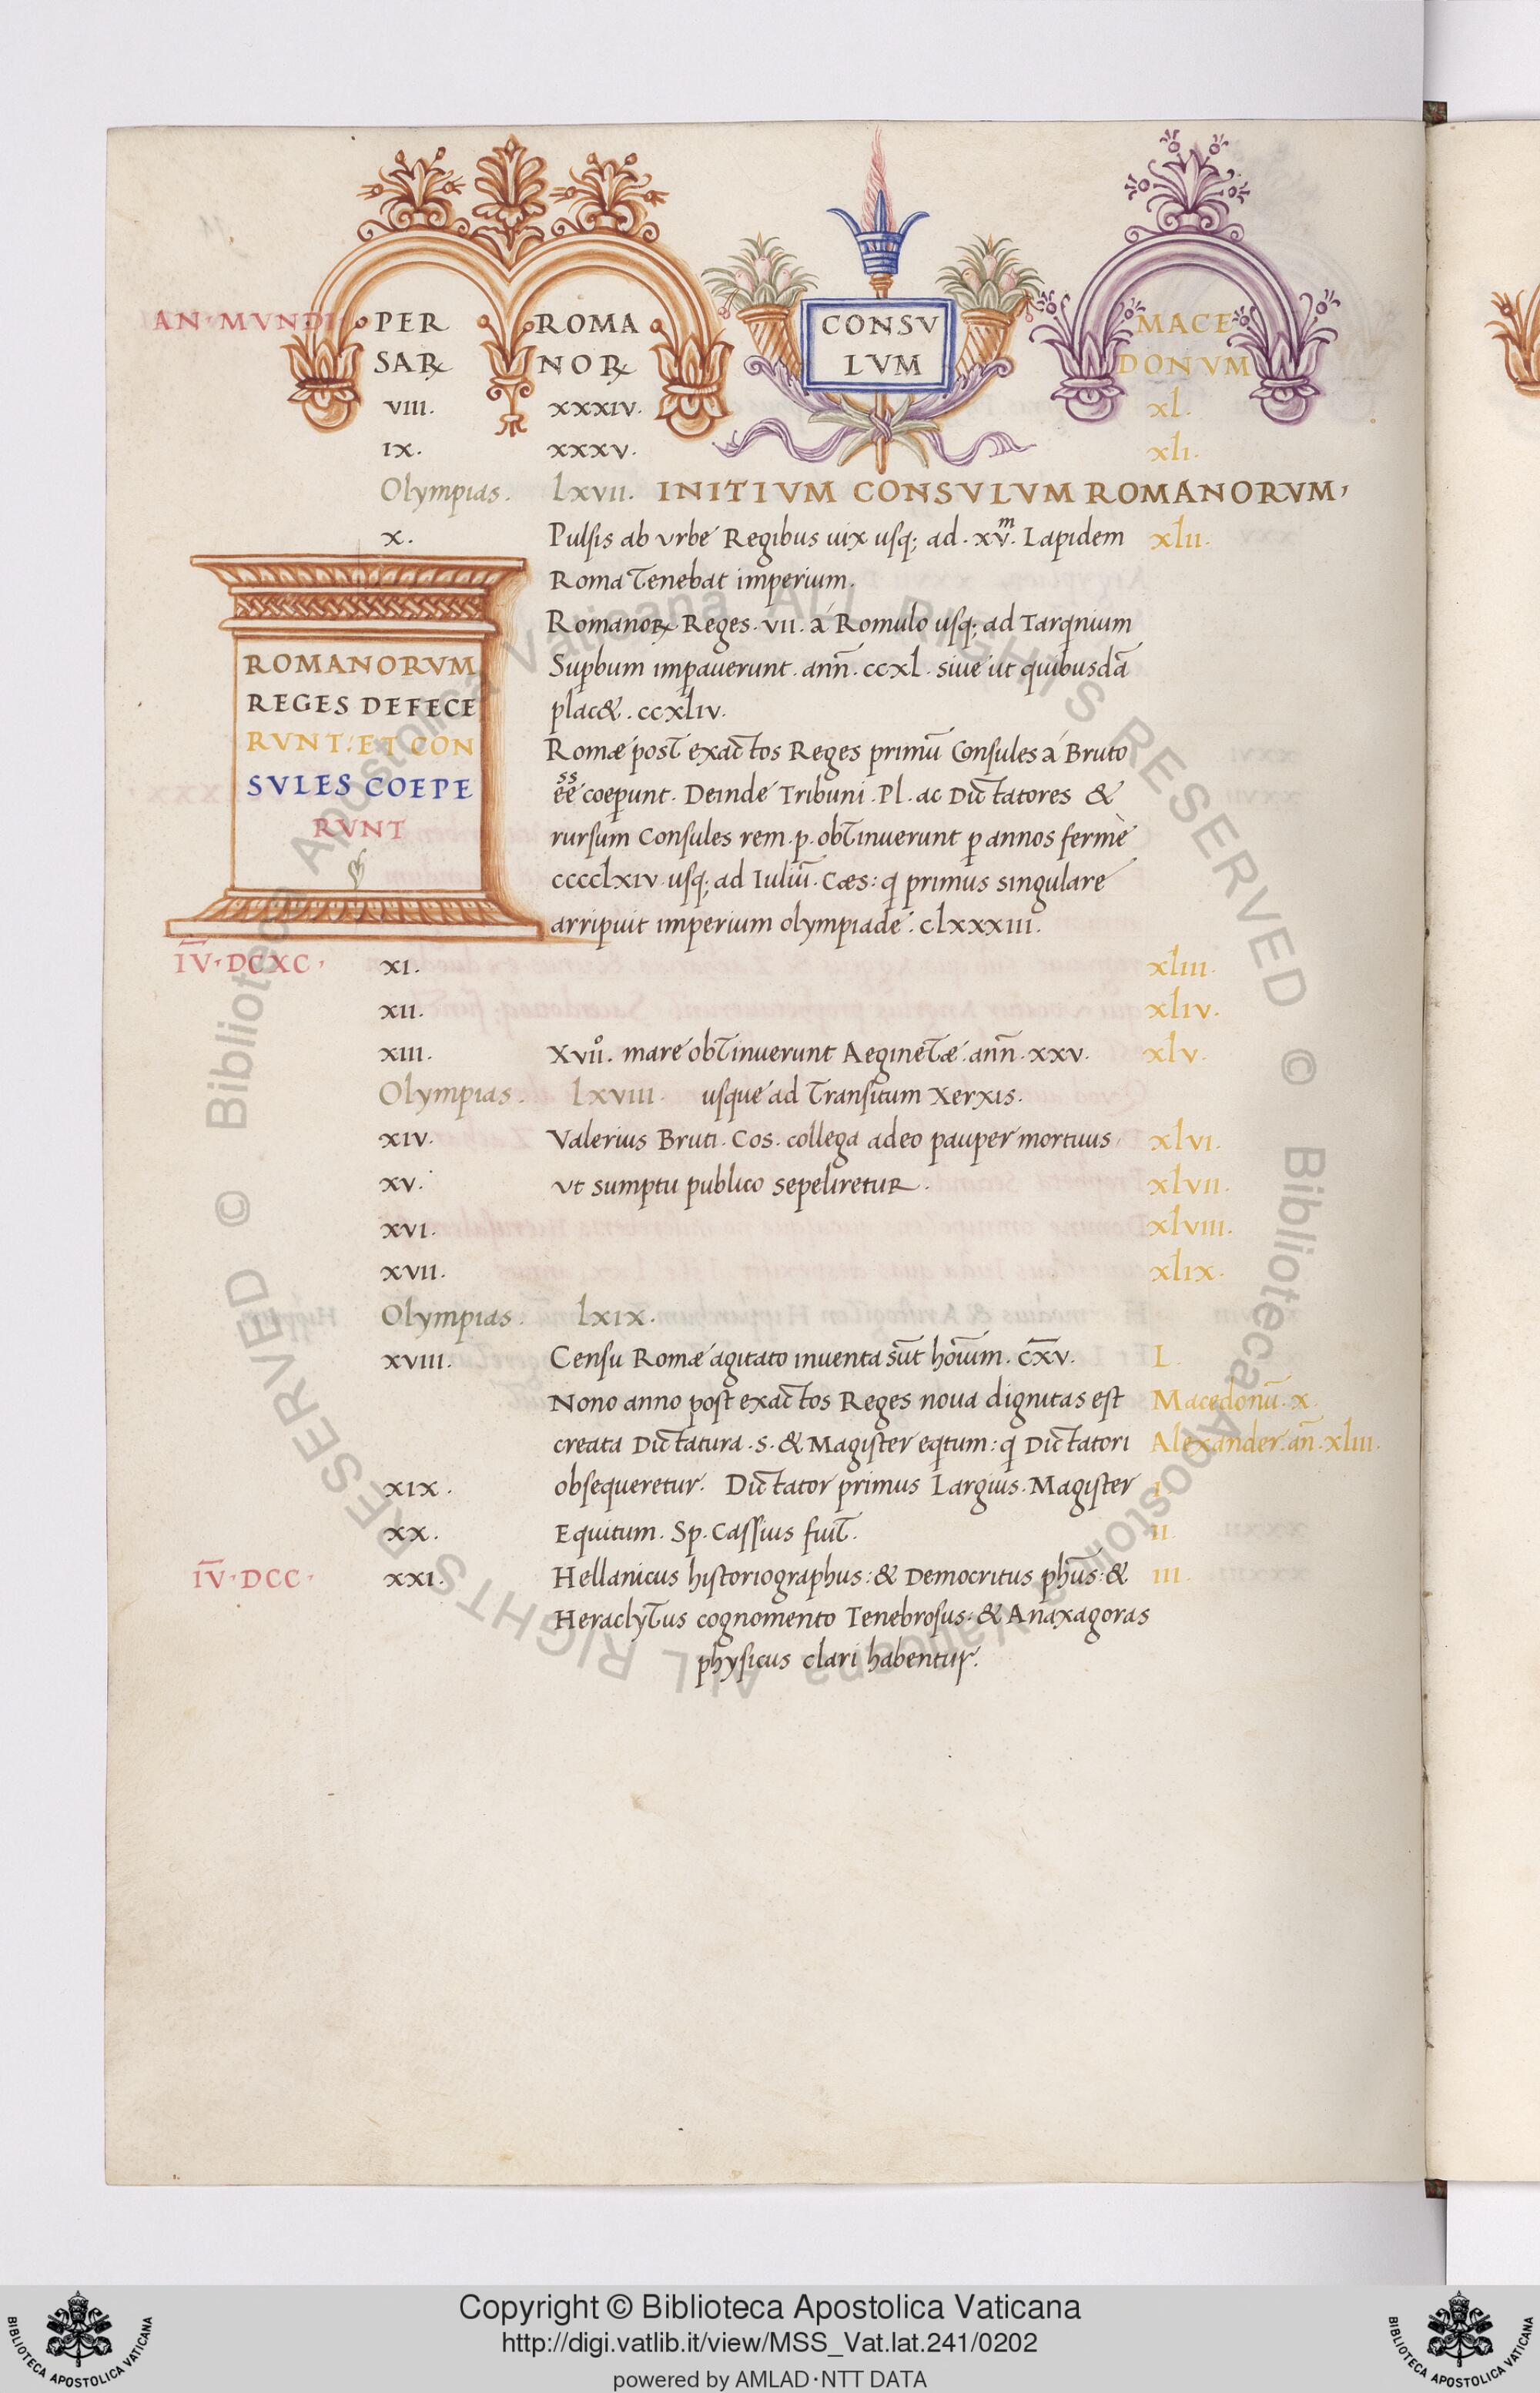 AN·MVNDI PER ROMA CONSV MACE
SAꝜ NOꝜ LVM DONVM
VIII. XXXIV. xl.
IX. XXXV. xli.
Olympias. lxvii. INITIVM CONSVLVM ROMANORVM,
X. Pulsis ab vrbe Regibus uix usq; ad · xv̅ᵐ. Lapidem xlii.
Roma Tenebat imperium.
Romanoꝝ Reges · VII · a Romulo usq; ad Tarqnium
Suꝑbum imꝑauerunt · ann̄ · ccxl · siue ut quibusdā
plac& · ccxliv.
Romæ post exactos Reges primū Consules a Bruto
ēēˢˢ coeꝑunt. Deinde Tribuni · Pl · ac Dictatores &
rursum Consules rem · p · obtinuerunt ꝑ annos fermè
cccclxiv · usq; ad Iuliū · Cæs: q̄ primus singulare
arripuit imperium olympiade · clxxxiii.
ROMANORVM
REGES DEFECE
RVNT: ET CON
SVLES COEPE
RVNT
I̅V̅·DCXC· XI. xliii.
XII. xliv.
XIII. Xviiº. mare obtinuerunt Aeginetæ · ann̄ · xxv. xlv.
Olympias. lxviii. usque ad Transitum Xerxis.
XIV. Valerius Bruti · Cos · collega adeo pauper mortuus xlvi.
XV. vt sumptu publico sepeliretur. xlvii.
XVI. xlviii.
XVII. xlix.
Olympias. lxix.
XVIII. Censu Romæ agitato inuenta sūt hoīum · c̅x̅v̅. L.
Nono anno post exactos Reges noua dignitas est Macedonū · x.
creata Dictatura · s · & Magister eqtum: q̄ Dictatori Alexander · an̄ · xliii.
XIX. obsequeretur. Dictator primus Largius · Magister I
XX. Equitum · Sp · Cassius fuit. II.
I̅V̅·DCC· XXI. Hellanicus historiographus: & Democritus phūs: & III.
Heraclytus cognomento Tenebrosus · & Anaxagoras
physicus clari habentur.
Copyright © Biblioteca Apostolica Vaticana
http://digi.vatlib.it/view/MSS_Vat.lat.241/0202
powered by AMLAD·NTT DATA
BIBLIOTECA APOSTOLICA VATICANA
BIBLIOTECA APOSTOLICA VATICANA
© Biblioteca Apostolica Vaticana ALL RIGHTS RESERVED © Biblioteca Apostolica Vaticana ALL RIGHTS RESERVED